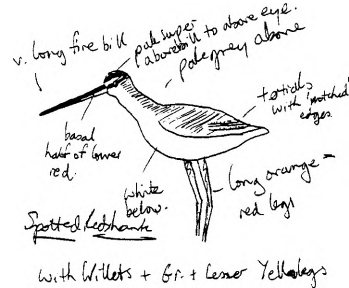 v. long fine bill
pale super
above bill to above eye.
pale grey above
tertials
with 'notched'
edges
basal
half of lower
red.
white
below.
long orange-
red legs
Spotted Redshank
with Willets + Gr. + Lesser Yellowlegs